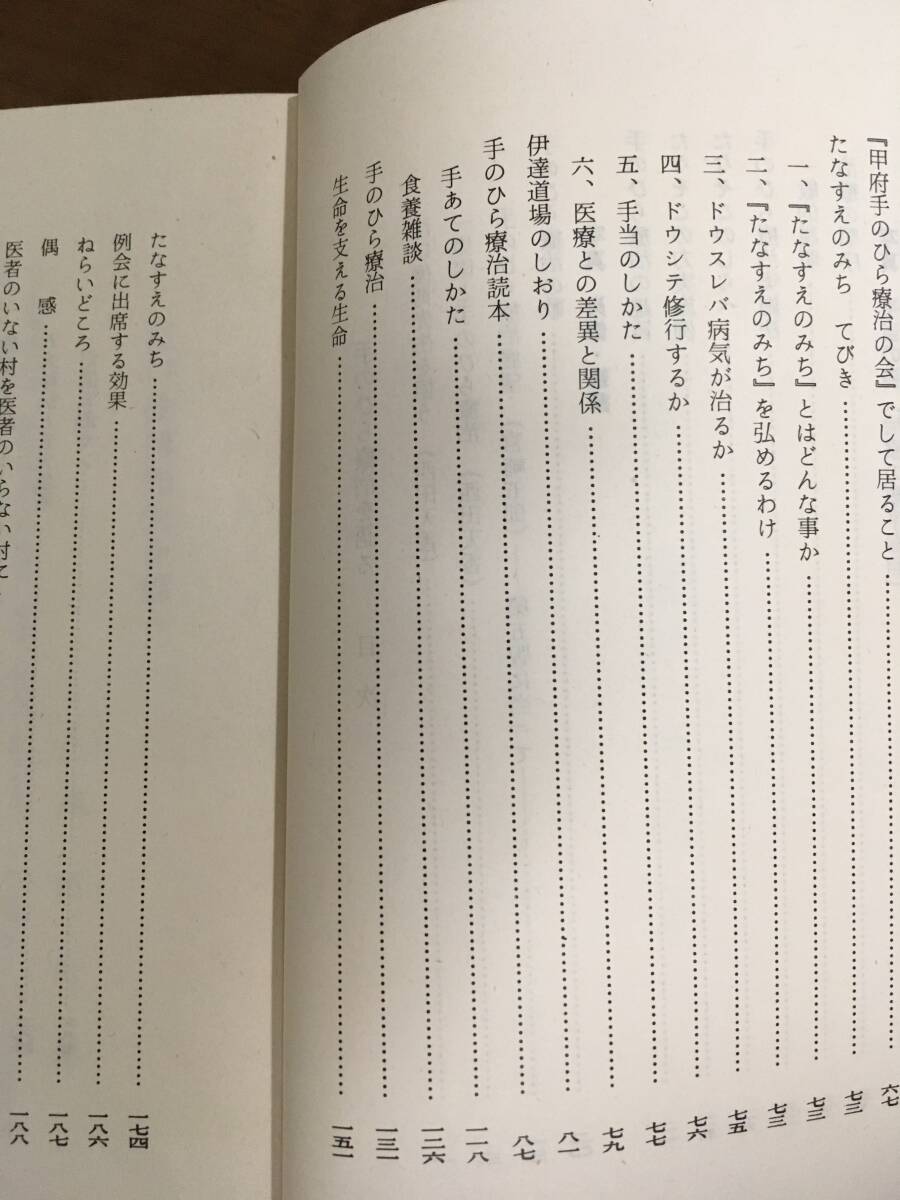 『甲府手のひら療治の会』でして居ること……六七
たなすえのみち てびき……七三
一、『たなすえのみち』とはどんな事か……七三
二、『たなすえのみち』を弘めるわけ……七三
三、ドウスレバ病気が治るか……七五
四、ドウシテ修行するか……七六
五、手当のしかた……七七
六、医療との差異と関係……七九
伊達道場のしおり……八一
手のひら療治読本……八七
手あてのしかた……一一八
食養雑談……一二六
手のひら療治……一三一
生命を支える生命……一五一
たなすえのみち……一七四
例会に出席する効果……一八六
ねらいどころ……一八七
偶 感……一八八
医者のいない村を医者のいらない村に